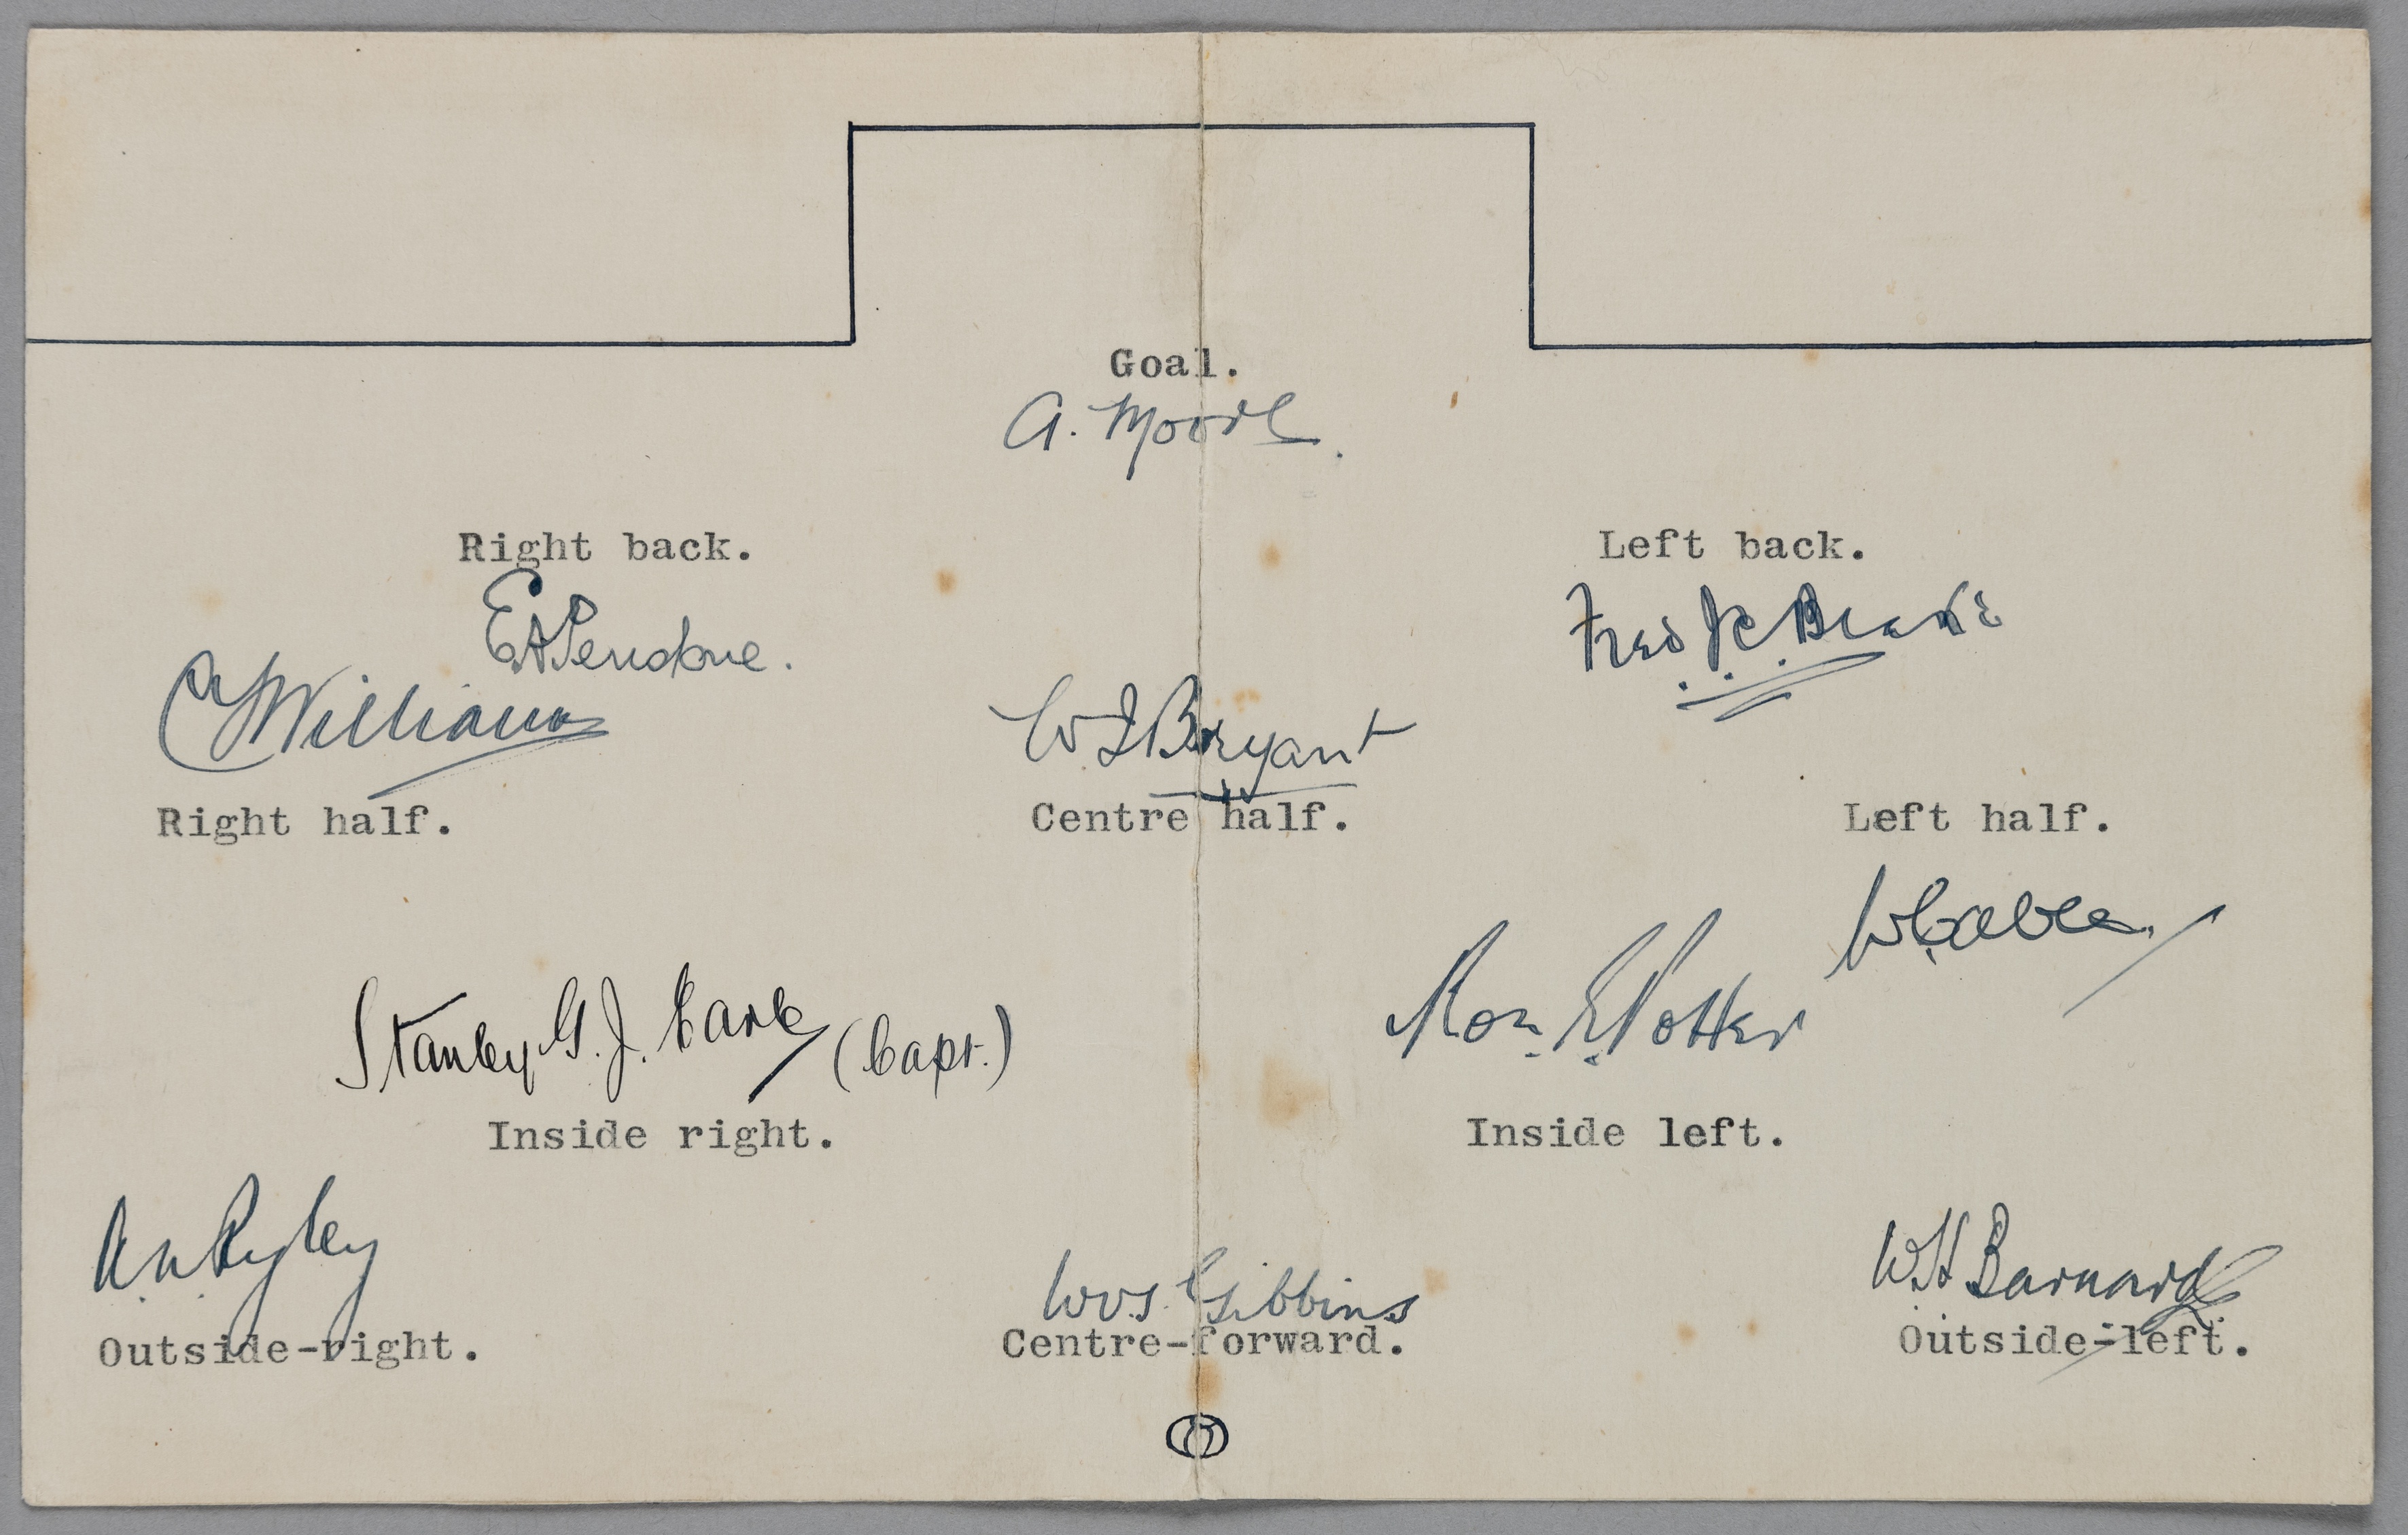 Goal.
A. Moore.
Right back.
Left back.
C Williams
W I Bryant
Right half.
Centre half.
Left half.
Stanley G. J. Earle (Capt.)
Ron. E. Potter
Inside right.
Inside left.
W.V.S. Gibbins
W H Barnard
Outside-right.
Centre-forward.
Outside-left.